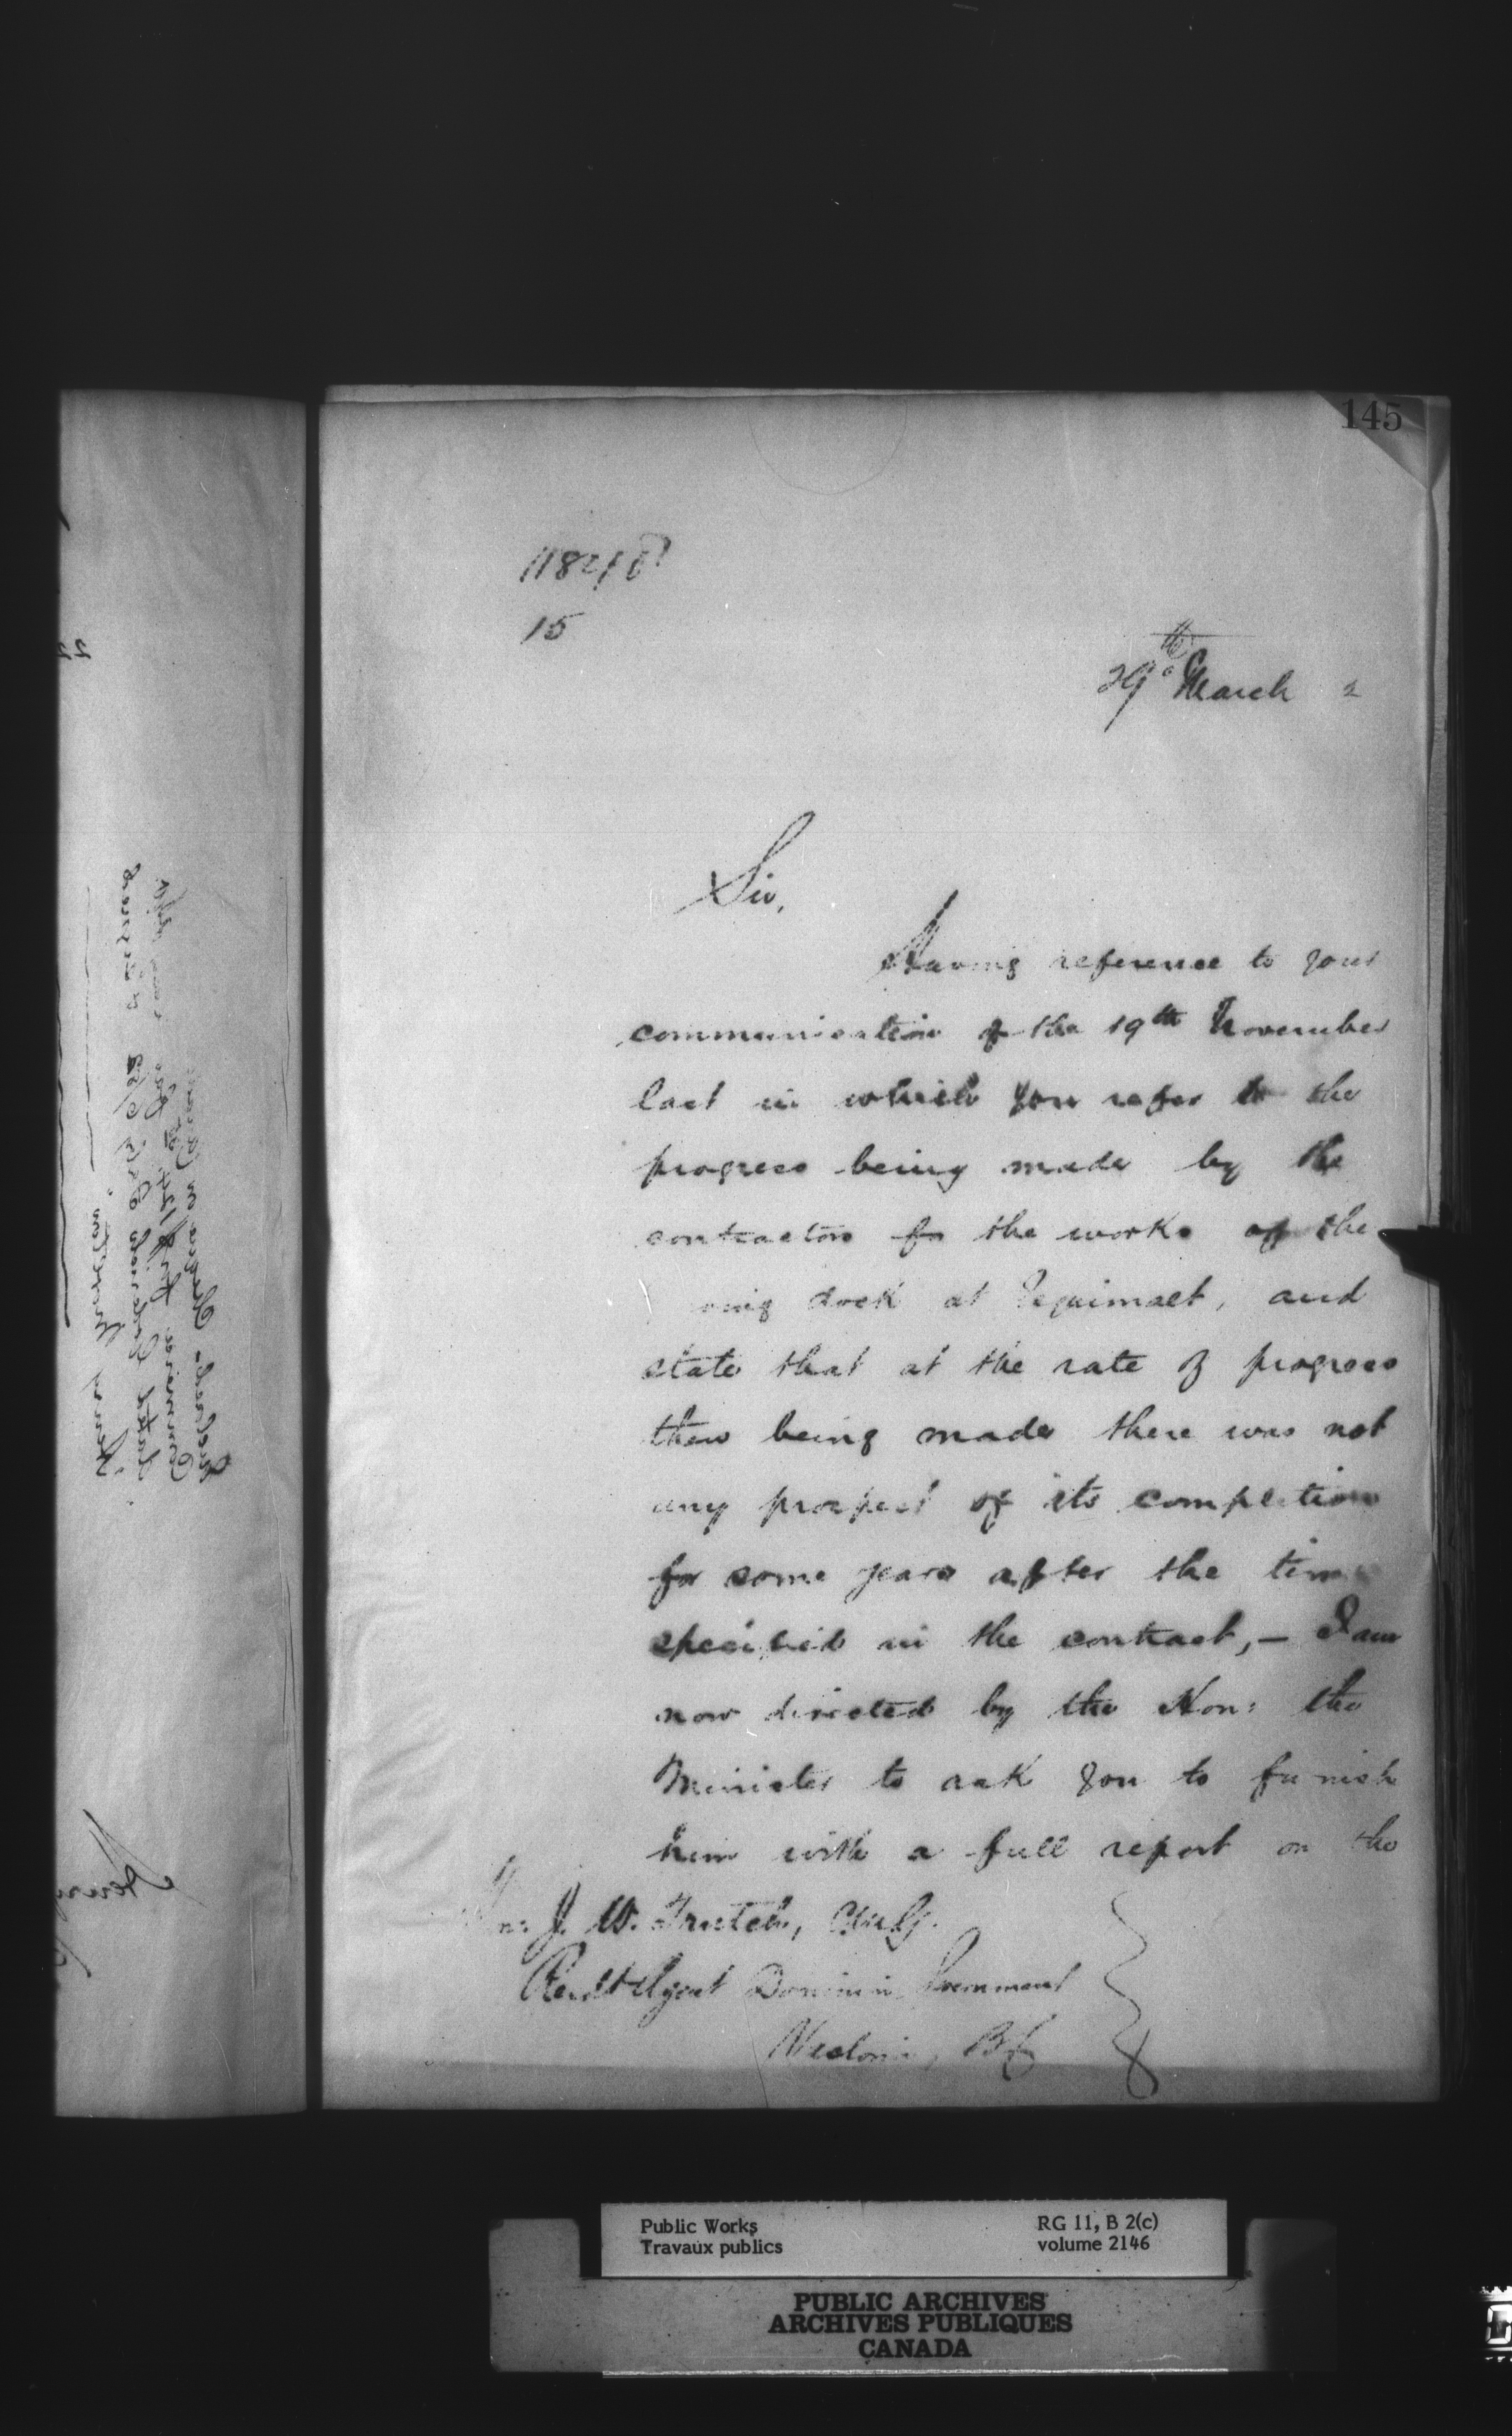 145
15
29th March 2
Sir,
Having reference to your
communication of the 19th November
last in which you refer to the
progress being made by the
contractors for the works of the
ving dock at Esquimalt, and
state that at the rate of progress
then being made there was not
any prospect of its completion
for some years after the time
specified in the contract, — I am
now directed by the Hon: the
Minister to ask you to furnish
him with a full report on the
J. W. Trutch, CMG.
Resdt Agent Dominion Government
Victoria, BC
Public Works
Travaux publics
RG 11, B 2(c)
volume 2146
PUBLIC ARCHIVES
ARCHIVES PUBLIQUES
CANADA